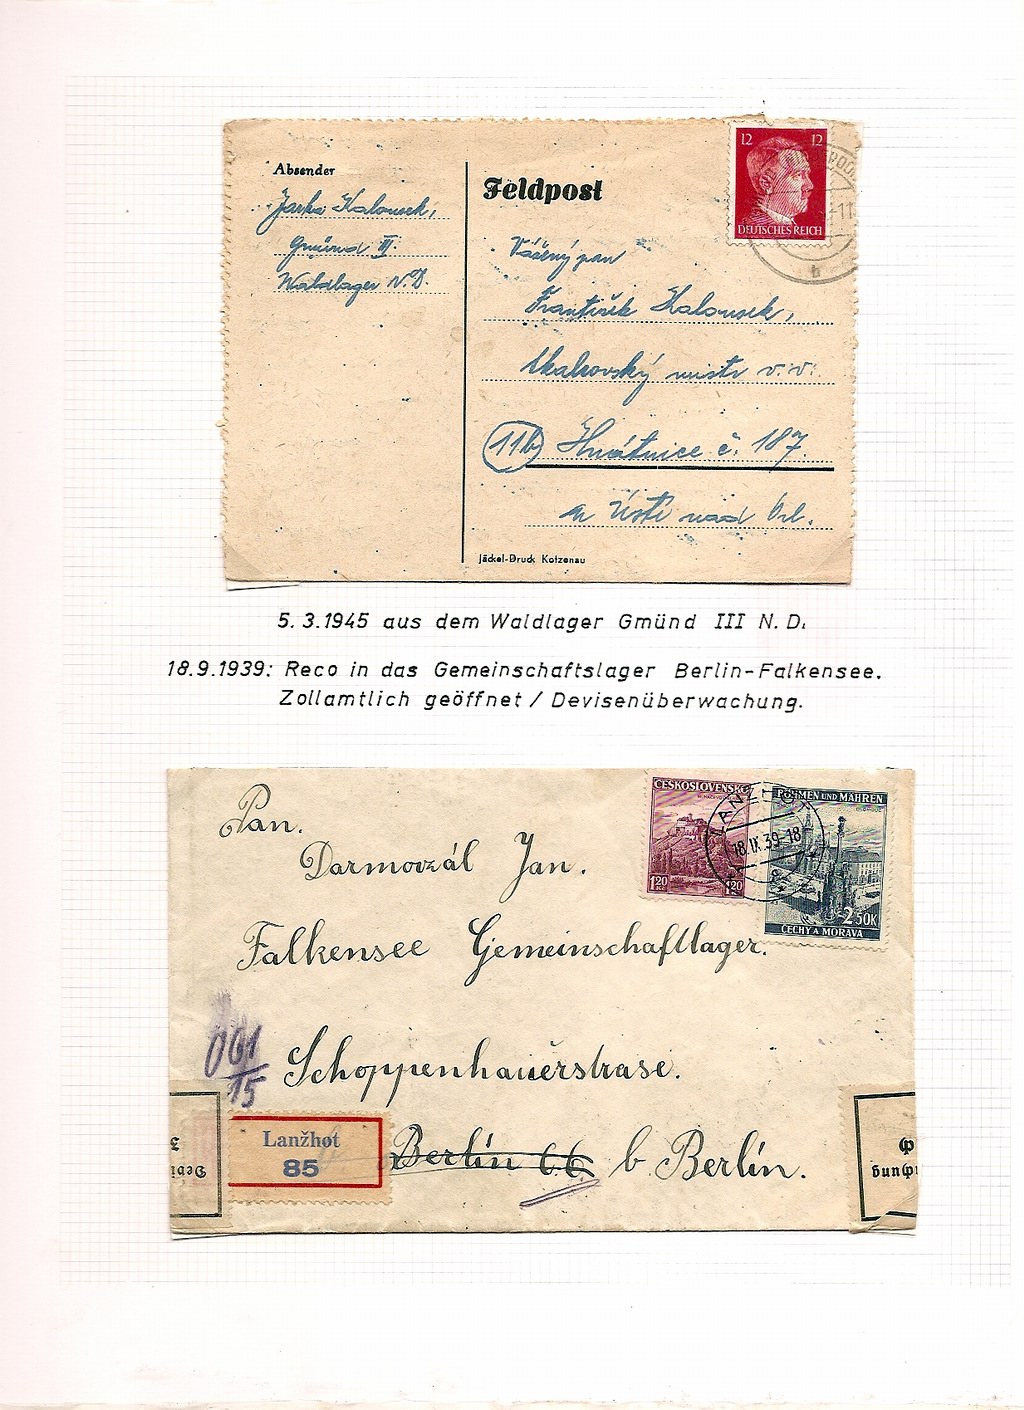 Absender
Jarka Kalousek,
Gmünd III.
Waldlager N.D.
Feldpost
12 12
DEUTSCHES REICH
Vážený pan
František Kalousek,
mistr v.v.
11b Hnátnice č. 187.
Ústí nad Orl.
Jäckel-Druck Kotzenau
5.3.1945 aus dem Waldlager Gmünd III N.D.
18.9.1939: Reco in das Gemeinschaftslager Berlin-Falkensee.
Zollamtlich geöffnet / Devisenüberwachung.
ČESKOSLOVENSKO
1·20 1·20
BÖHMEN UND MÄHREN
2·50K
ČECHY A MORAVA
LANŽHOT
18.IX.39-18
Pan.
Darmovzál Jan.
Falkensee Gemeinschaftlager.
061
15
Schoppenhauerstrase.
Lanžhot
85
Berlin 66 b Berlin.